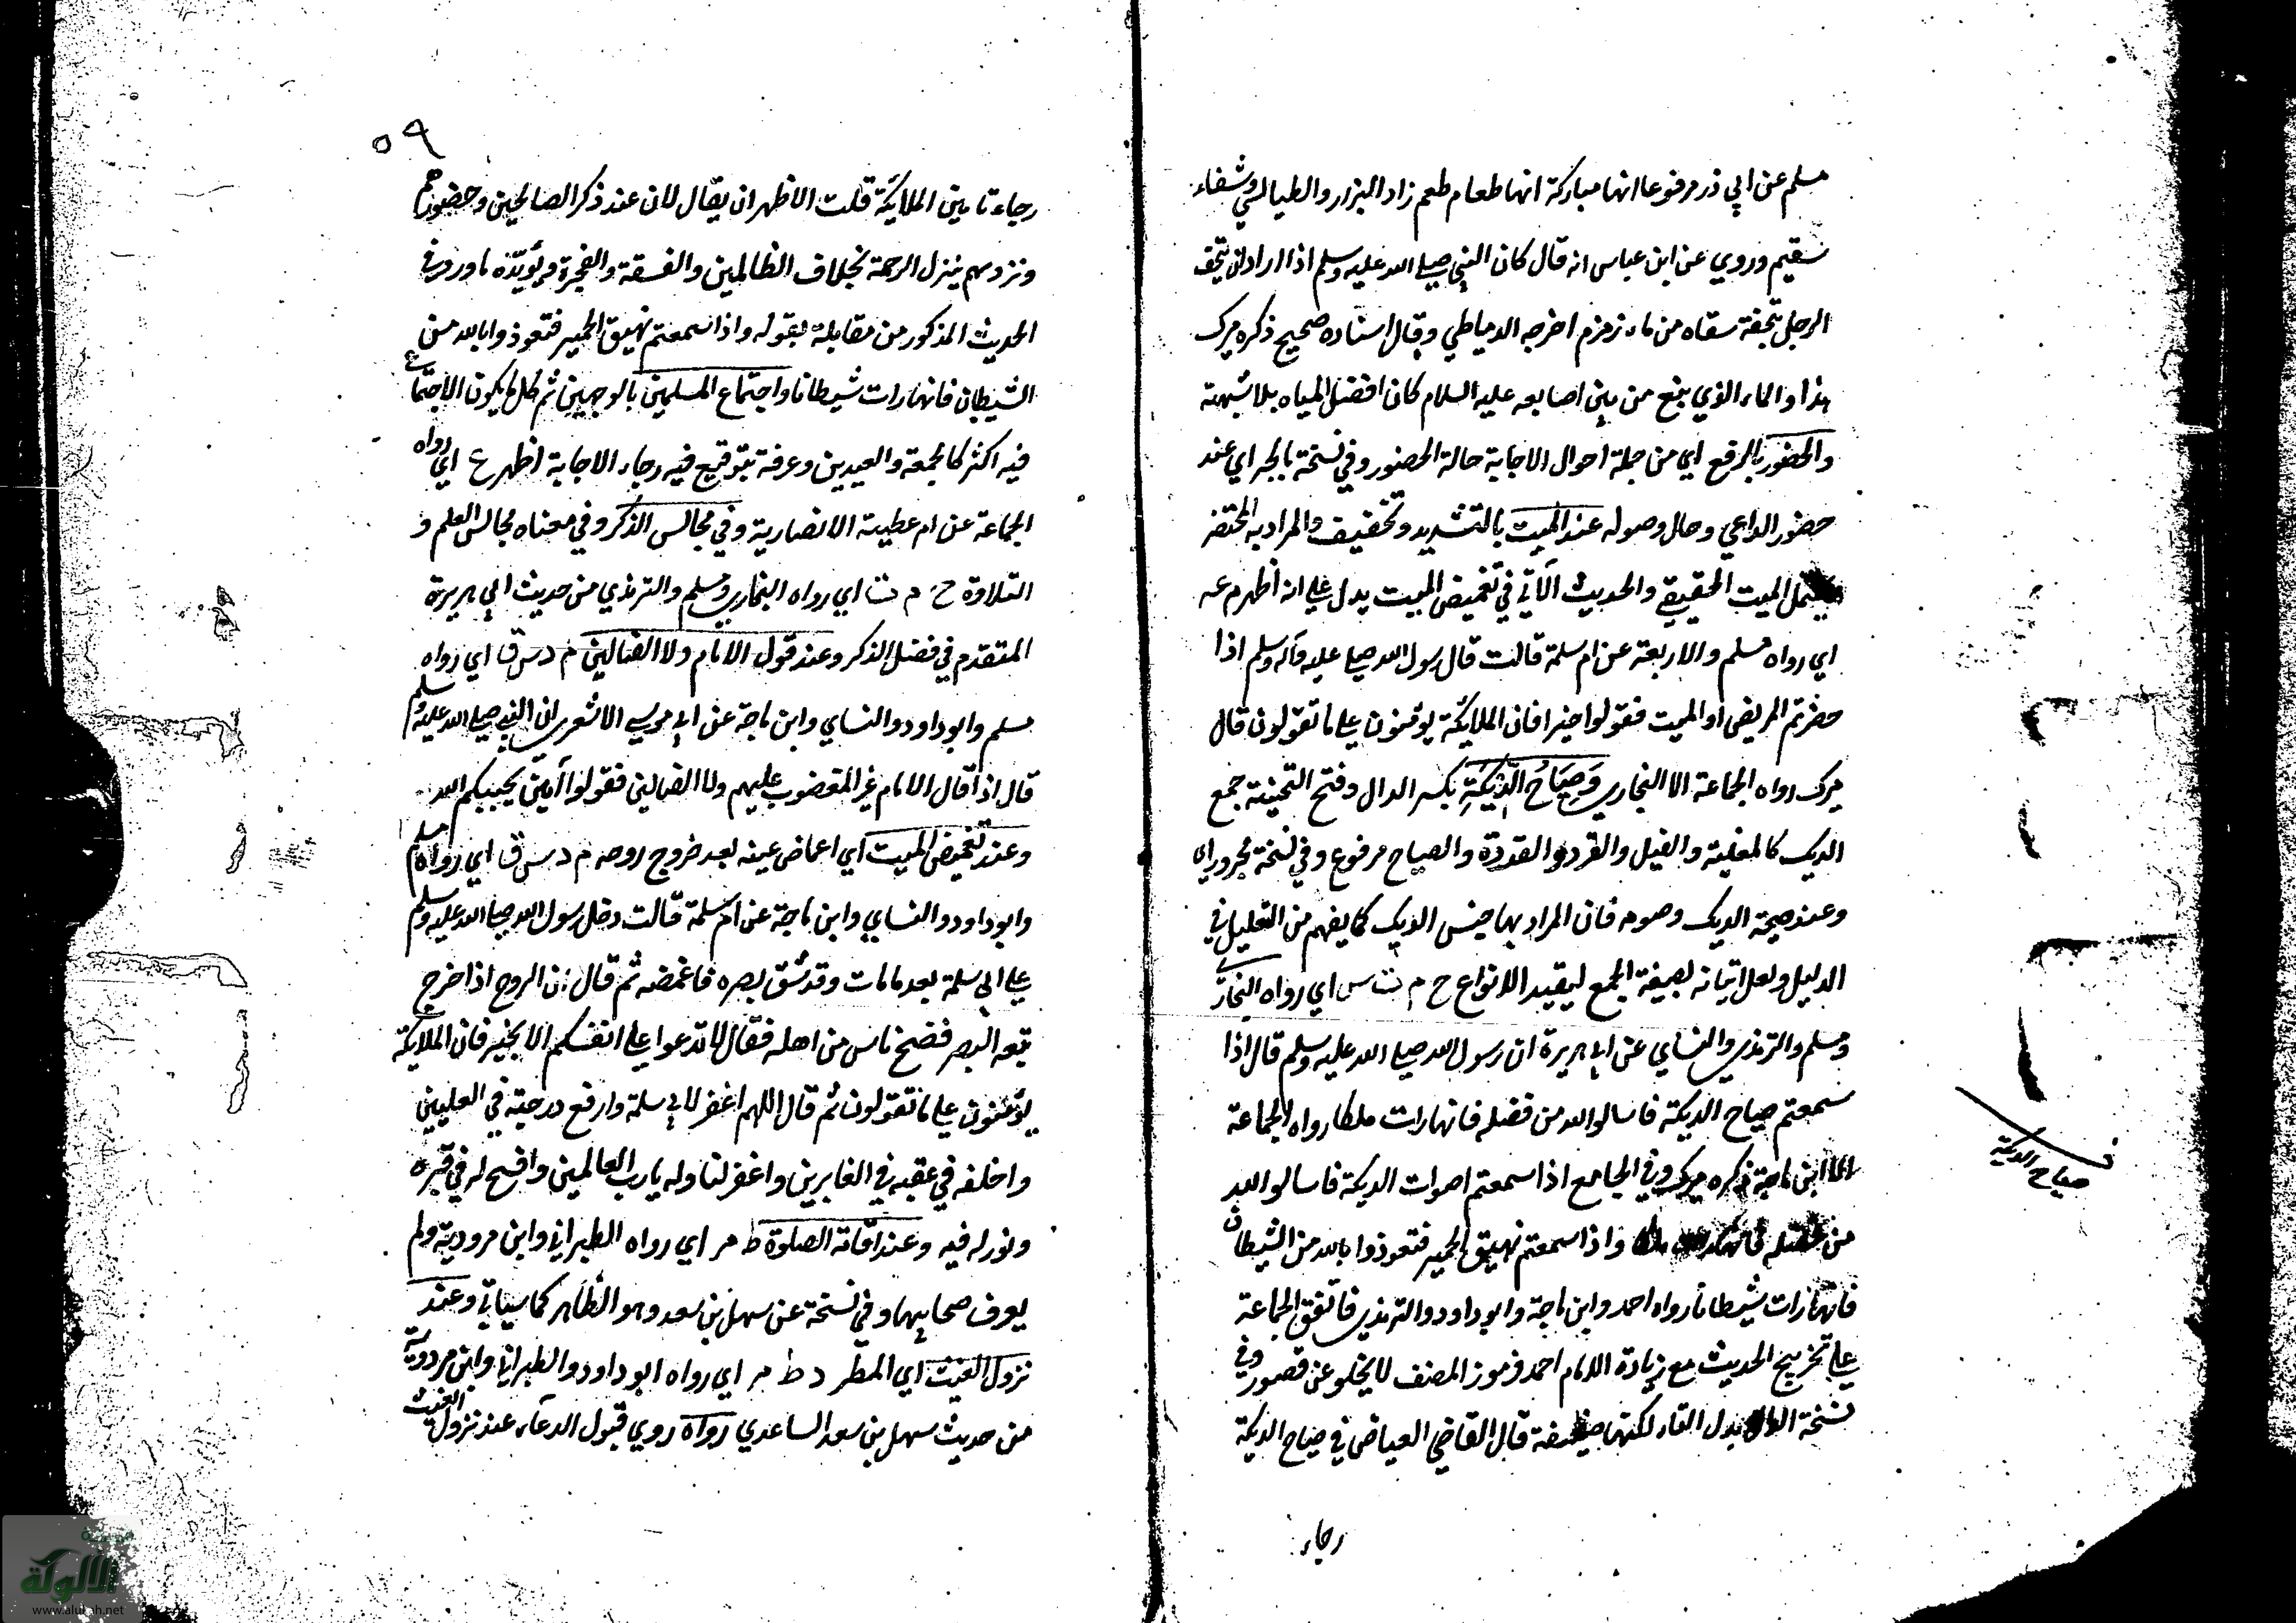 مسلم عن ابي ذر مرفوعا انها مباركة انها طعام طعم زاد البزار والطيالسي وشفاء
سقيم وروي عن ابن عباس انه قال كان النبي صلى الله عليه وسلم اذا اراد ان يتحف
الرجل بتحفة سقاه من ماء زمزم اخرجه الدمياطي وقال اسناده صحيح ذكره ميرك
هذا والماء الذي ينبع من بين اصابعه عليه السلام كان افضل المياه بلا شبهة
والحضور بالرفع اي من جملة احوال الاجابة حالة الحضور وفي نسخة بالجر اي عند
حضور الداعي وحال وصوله عند الميت بالتشديد وتخفيف والمراد به المحتضر
الميت الحقيقي والحديث الآتي في تغميض الميت يدل على انه اظهر م عه
اي رواه مسلم والاربعة عن ام سلمة قالت قال رسول الله صلى عليه وآله وسلم اذا
حضرتم المريض او الميت فقولوا خيرا فان الملائكة يؤمنون على ما تقولون قال
ميرك رواه الجماعة الا البخاري وَصِيَاحُ الدِّيَكَةِ بكسر الدال وفتح التحتية جمع
الديك كالفيلة والفيل والقرد والقردة والصياح مرفوع وفي نسخة مجرور اي
وعند صيحة الديك وصوته فان المراد بها جنس الديك كما يفهم من التعليل في
الدليل ولعل اتيانه بصيغة الجمع ليقيد الانواع خ م ت س اي رواه البخار
ومسلم والترمذي والنساي عن ابي هريرة ان رسول الله صلى الله عليه وسلم قال اذا
سمعتم صياح الديكة فاسالوا الله من فضله فانها رات ملكا رواه الجماعة
الا ابن ماجة ذكره ميرك وفي الجامع اذا سمعتم اصوات الديكة فاسالوا الله
من فضله فانها رات ملكا واذا سمعتم نهيق الحمير فتعوذوا بالله من الشيطان
فانها رات شيطانا رواه احمد وابن ماجة وابو داود والترمذي فاتفق الجماعة
على تخريج الحديث مع زيادة الامام احمد فرموز المصنف لا يخلو عن قصور وفي
نسخة الدال بدل القاء لكنها ضعيفة قال القاضي العياض في صياح الديكة
رجاء
صياح الديكة
٥٩
رجاء تامين الملائكة قلت الاظهر ان يقال لان عند ذكر الصالحين وحضورهم
ونزولهم ينزل الرحمة بخلاف الظالمين والفسقة والفجرة ويؤيده ما ورد في
الحديث المذكور من مقابلة بقوله واذا سمعتم نهيق الحمير فتعوذوا بالله من
الشيطان فانها رات شيطانا واجتماع المسلمين بالوجهين ثم كل ما يكون الاجتماع
فيه اكثر كالجمعة والعيدين وعرفة يتوقع فيه رجاء الاجابة اظهر ع اي رواه
الجماعة عن ام عطية الانصارية وفي مجالس الذكر وفي معناه مجالس العلم و
التلاوة خ م ت اي رواه البخاري ومسلم والترمذي من حديث ابي هريرة
المتقدم في فضل الذكر وعند قول الامام ولا الضالين م د س ق اي رواه
مسلم وابو داود والنساي وابن ماجة عن ابي موسى الاشعري ان النبي صلى الله عليه وسلم
قال اذا قال الامام غير المغضوب عليهم ولا الضالين فقولوا آمين يجبكم الله
وعند تغميض الميت اي اغماض عينه بعد خروج روحه م د س ق اي رواه مسلم
وابو داود والنساي وابن ماجة عن ام سلمة قالت دخل رسول الله صلى الله عليه وسلم
على ابي سلمة بعد ما مات وقد شق بصره فاغمضه ثم قال ان الروح اذا خرج
تبعه البصر فضج ناس من اهله فقال لا تدعوا على انفسكم الا بخير فان الملائكة
يؤمنون على ما تقولون ثم قال اللهم اغفر لابي سلمة وارفع درجته في العليين
واخلفه في عقبه في الغابرين واغفر لنا وله يا رب العالمين وافسح له في قبره
ونور له فيه وعند اقامة الصلوة ط مر اي رواه الطبراني وابن مردويه ولم
يعرف صحابيها وفي نسخة عن سهل بن سعد وهو الظاهر كما سياتي وعند
نزول الغيث اي المطر د ط مر اي رواه ابو داود والطبراني وابن مردوية
من حديث سهل بن سعد الساعدي رواه روي قبول الدعاء عند نزول الغيث
الألوكة
www.alukah.net